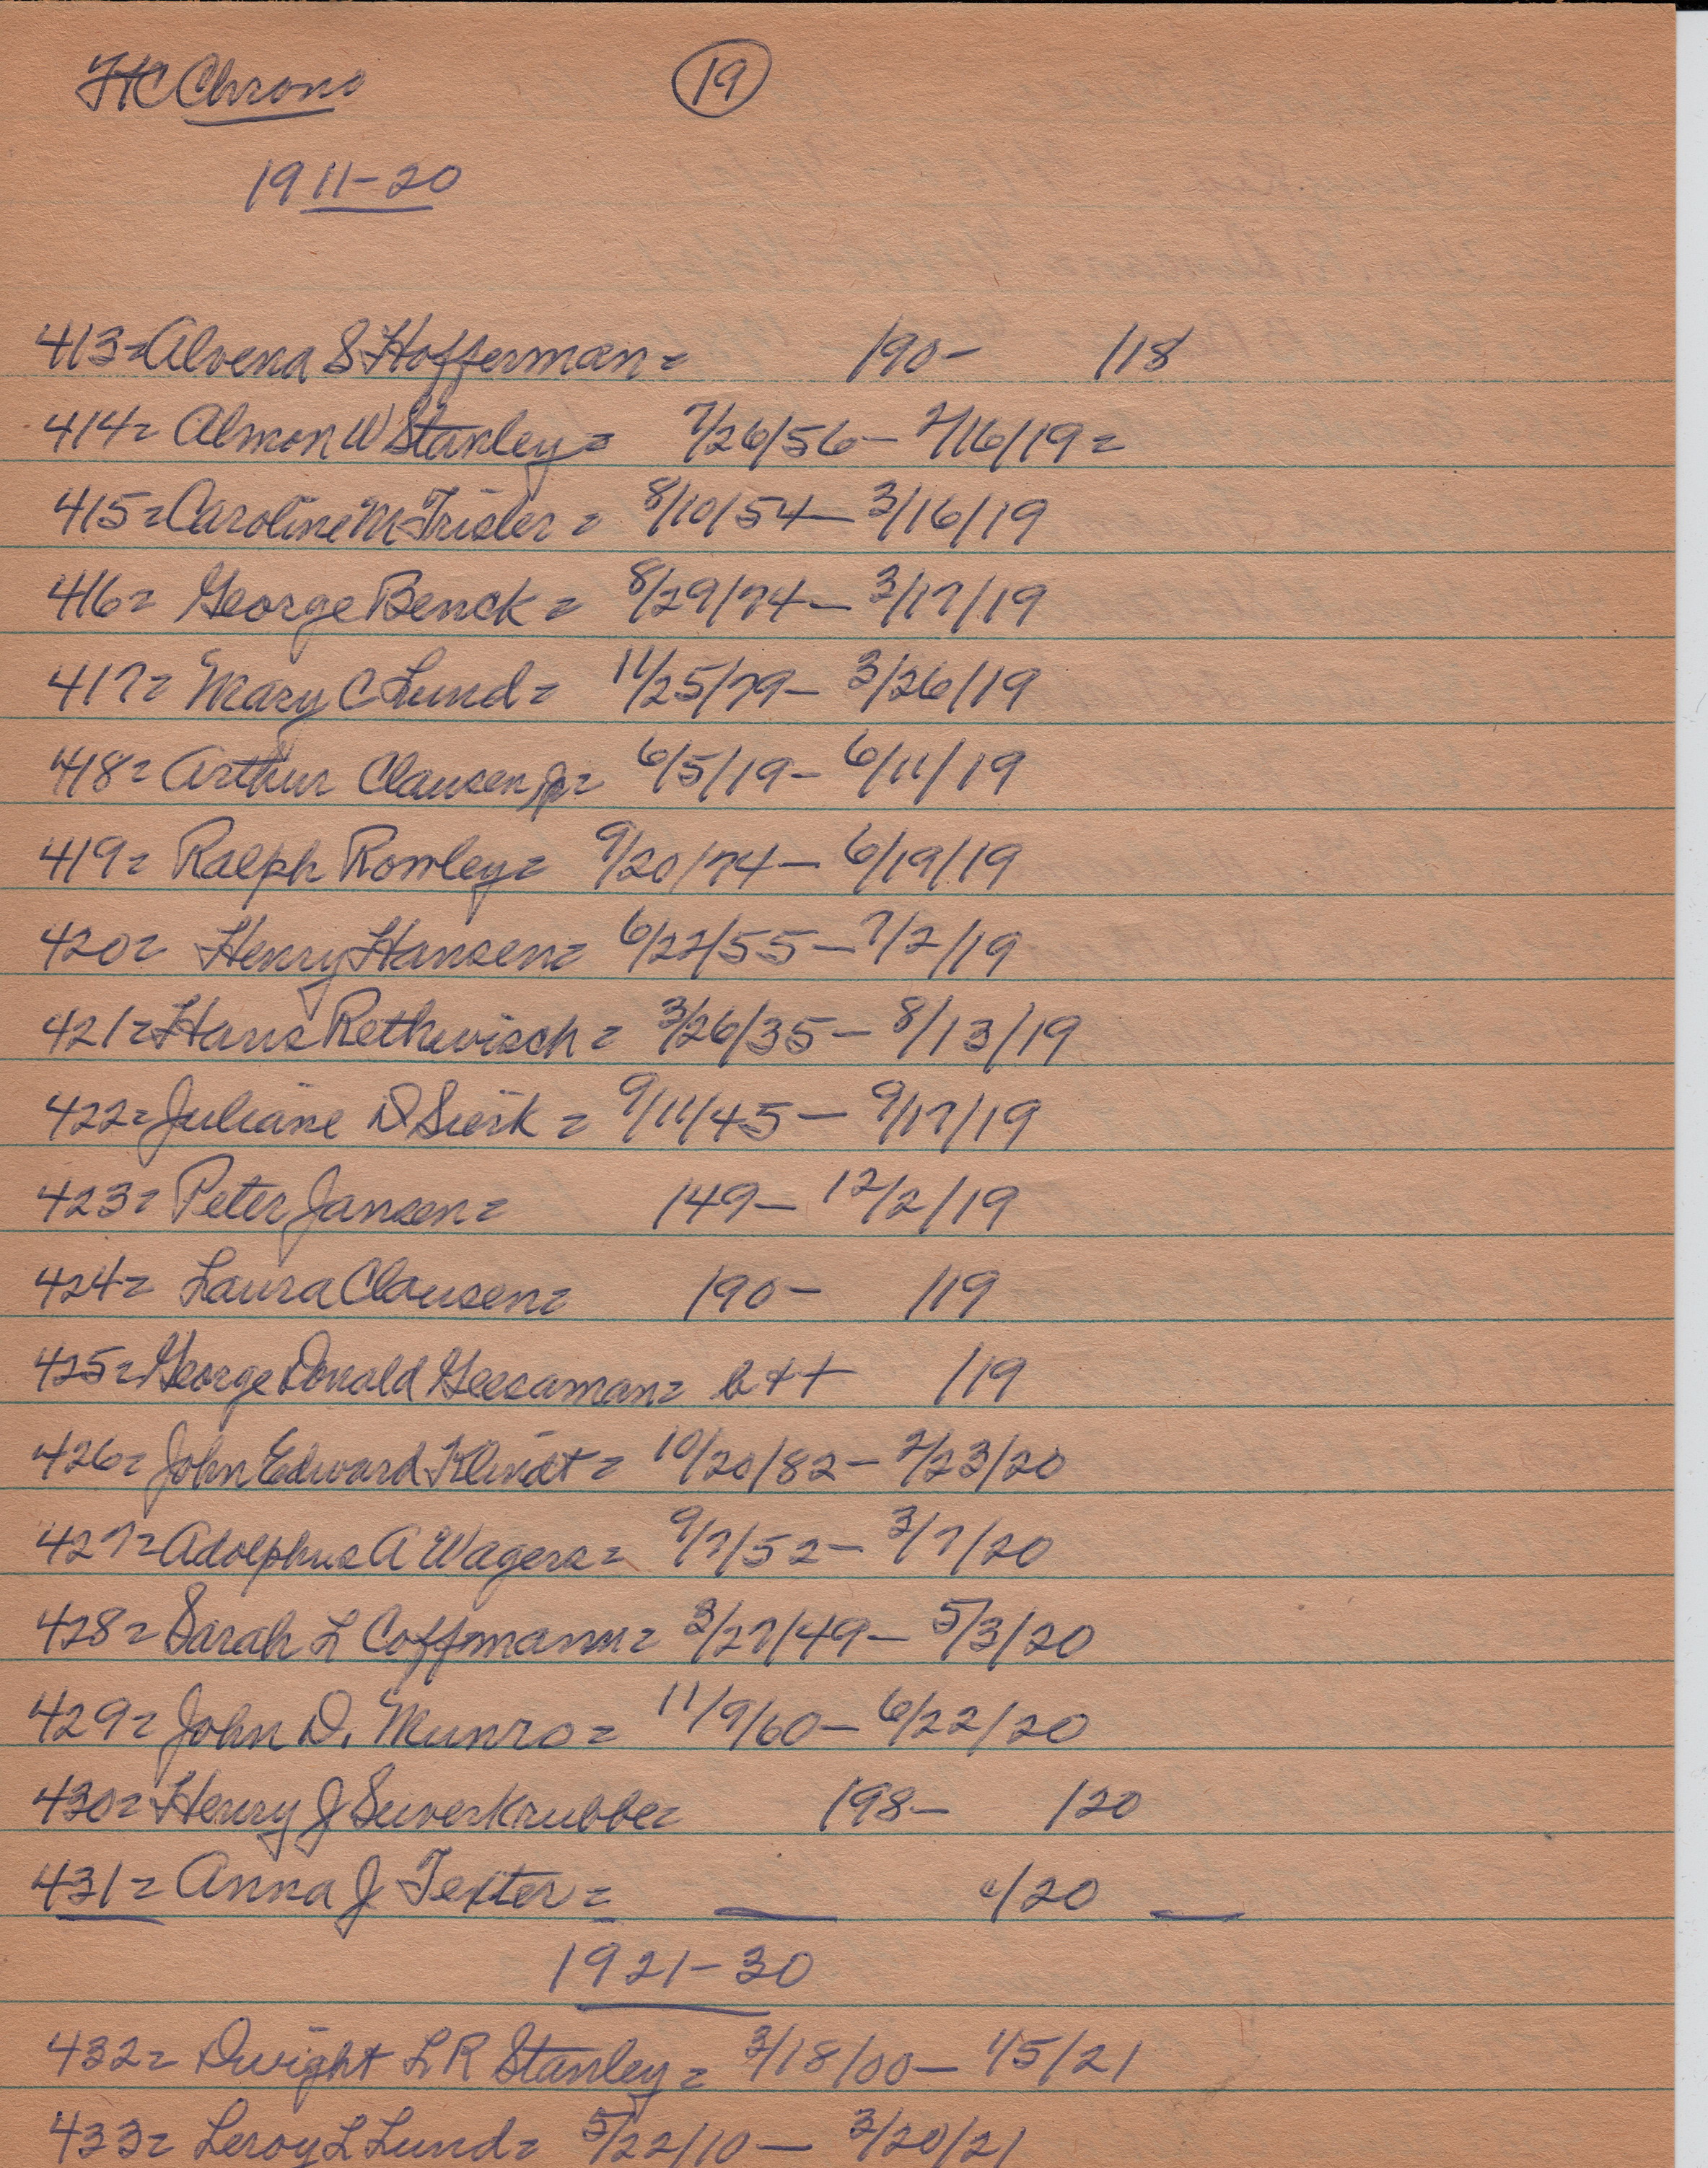 HC Chrono 19
1911-20
413= Alvena S Hofferman= /90- /18
414= Almon W Stanley= 7/26/56- 2/16/19=
415= Caroline M Trisler= 8/10/54- 3/16/19
416= George Benck= 8/29/74- 3/17/19
417= Mary C Lund= 11/25/79- 3/26/19
418= Arthur Clausen Jr= 6/5/19- 6/11/19
419= Ralph Rowley= 9/20/74- 6/19/19
420= Henry Hansen= 6/22/55- 7/2/19
421= Hans Rethwisch= 3/26/35- 8/13/19
422= Juliane D Sierk= 9/11/45- 9/17/19
423= Peter Jansen= /49- 12/2/19
424= Laura Clausen= /90- /19
425= George Donald Geesaman= b++ /19
426= John Edward Klindt= 10/20/82- 2/23/20
427= Adolphus A Wagers= 9/7/52- 3/7/20
428= Sarah L Coffmann= 3/27/49- 5/3/20
429= John D. Munro= 11/9/60- 6/22/20
430= Henry J Suverkrubbe= /98- /20
431= Anna J Texter= /20
1921-30
432= Dwight L R Stanley= 3/18/00- 1/5/21
433= Leroy L Lund= 5/22/10- 3/20/21